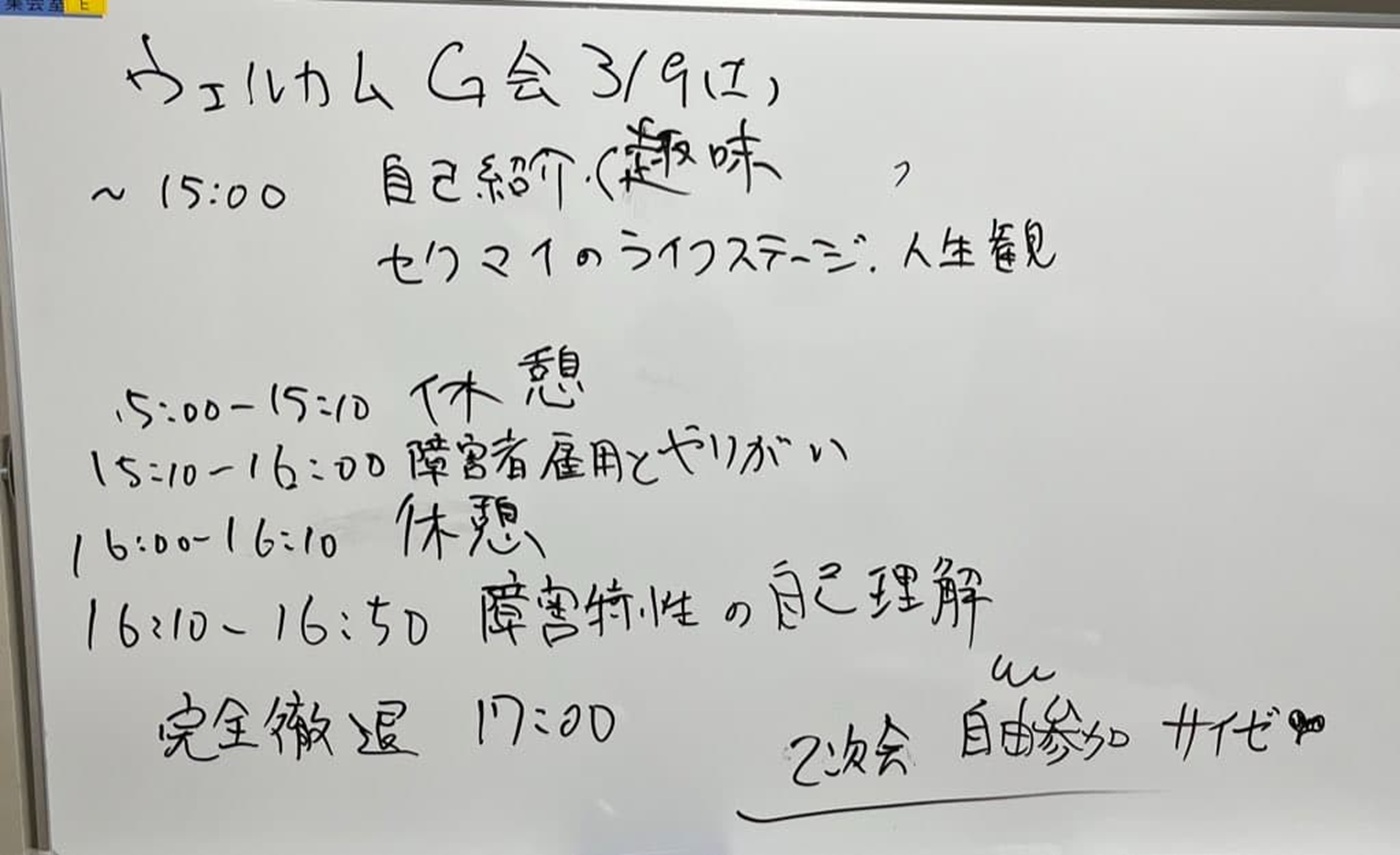 集会室 E
ウェルカム G会 3/9(土)
~ 15:00 自己紹介.(趣味 )
セクマイのライフステージ. 人生観
15:00-15:10 休憩
15:10-16:00 障害者雇用とやりがい
16:00-16:10 休憩
16:10-16:50 障害特性の自己理解
完全徹退 17:00
2次会 自由参加 サイゼ